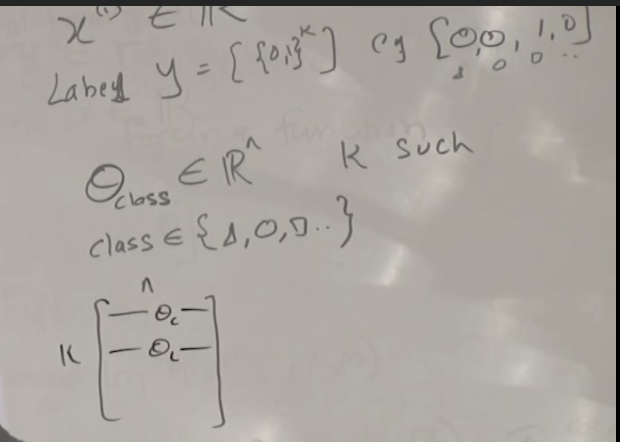 x⁽ⁱ⁾ ∈ ℝ
Label y = [{0,1}ᴷ] eg [0,0,1,0]
△ ○ □ ..
θ_class ∈ ℝⁿ K such
class ∈ {△,○,□..}
n
[— θ_c —
K — θ_c — ]